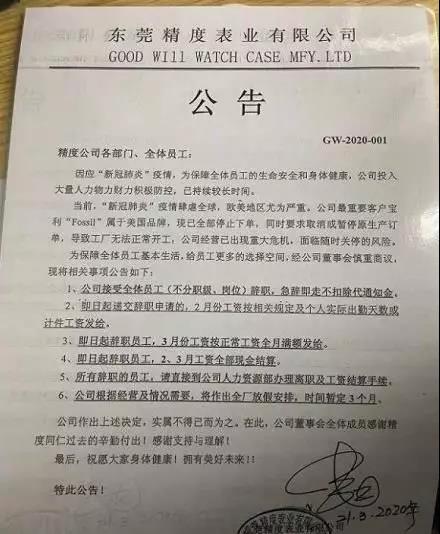 东莞精度表业有限公司
GOOD Will WATCH CASE MFY.LTD
公告
GW-2020-001
精度公司各部门、全体员工：
因应“新冠肺炎”疫情，为保障全体员工的生命安全和身体健康，公司投入
大量人力物力财力积极防控，已持续较长时间。
当前，“新冠肺炎”疫情肆虐全球，欧美地区尤为严重。公司最重要客户宝
利“Fossil”属于美国品牌，现已全部停止下单，同时要求取消或暂停原生产订
单，导致工厂无法正常开工，公司经营已出现重大危机，面临随时关停的风险。
为保障全体员工基本生活，给员工更多的选择空间，经公司董事会慎重商议，
现将相关事项公告如下：
1、公司接受全体员工（不分职级、岗位）辞职，急辞即走不扣除代通知金。
2、即日起递交辞职申请的，2月份工资按相关规定及个人实际出勤天数或
计件工资发给。
3、即日起辞职员工，3月份工资按正常工资全月满额发给。
4、即日起辞职员工，2、3月工资全部现金结算。
5、所有辞职的员工，请直接到公司人力资源部办理离职及工资结算手续。
6、公司根据经营及情况需要，将作出全厂放假安排，时间暂定3个月。
公司作出上述决定，实属不得已而为之。在此，公司董事会全体成员感谢精
度同仁过去的辛勤付出！感谢支持与理解！
最后，祝愿大家身体健康！拥有美好未来！！
特此公告！
21.3.2020年
精度表业有限公司